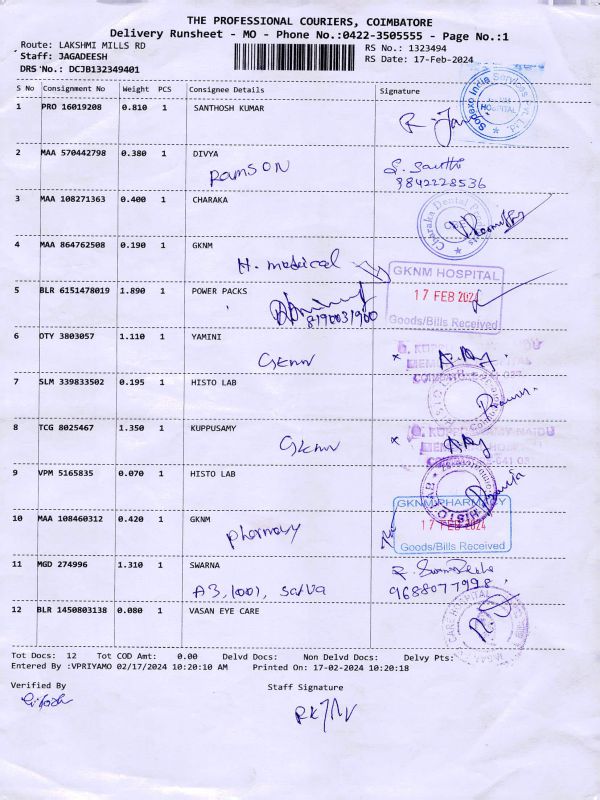 THE PROFESSIONAL COURIERS, COIMBATORE
Delivery Runsheet - MO - Phone No.:0422-3505555 - Page No.:1
Route: LAKSHMI MILLS RD RS No.: 1323494
Staff: JAGADEESH RS Date: 17-Feb-2024
DRS No.: DCJB132349401
S No Consignment No Weight PCS Consignee Details Signature
1 PRO 16019208 0.810 1 SANTHOSH KUMAR
HOSPITAL
2 MAA 570442798 0.380 1 DIVYA
RAMSON
9842228536
3 MAA 108271363 0.400 1 CHARAKA
Charaka Dental
4 MAA 864762508 0.190 1 GKNM
H. medical
GKNM HOSPITAL
17 FEB 2024
Goods/Bills Received
5 BLR 6151478019 1.890 1 POWER PACKS
8190031900
6 OTY 3803057 1.110 1 YAMINI
GKNM
7 SLM 339833502 0.195 1 HISTO LAB
8 TCG 8025467 1.350 1 KUPPUSAMY
GKNM
9 VPM 5165835 0.070 1 HISTO LAB
10 MAA 108460312 0.420 1 GKNM
pharmacy
GKNM PHARMACY
17 FEB 2024
Goods/Bills Received
11 MGD 274996 1.310 1 SWARNA
A3, 1001,
9688077998
12 BLR 1450803138 0.080 1 VASAN EYE CARE
Tot Docs: 12 Tot COD Amt: 0.00 Delvd Docs: Non Delvd Docs: Delvy Pts:
Entered By :VPRIYAMO 02/17/2024 10:20:10 AM Printed On: 17-02-2024 10:20:18
Verified By Staff Signature